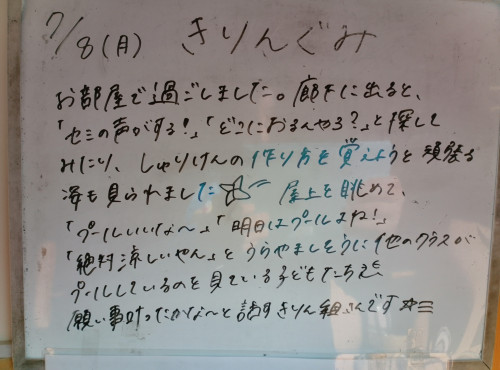 7/8(月) きりんぐみ
お部屋で過ごしました。廊下に出ると、
「セミの声がする!」「どこにおるんやろ?」と探して
みたり、しゅりけんの作り方を覚えようと頑張る
姿も見られました 屋上を眺めて、
「プールいいな〜」「明日はプールよね!」
「絶対涼しいやん」とうらやましそうに他のクラスが
プールしているのを見ている子どもたち
願い事叶ったかな〜と話すきりん組さんです☆